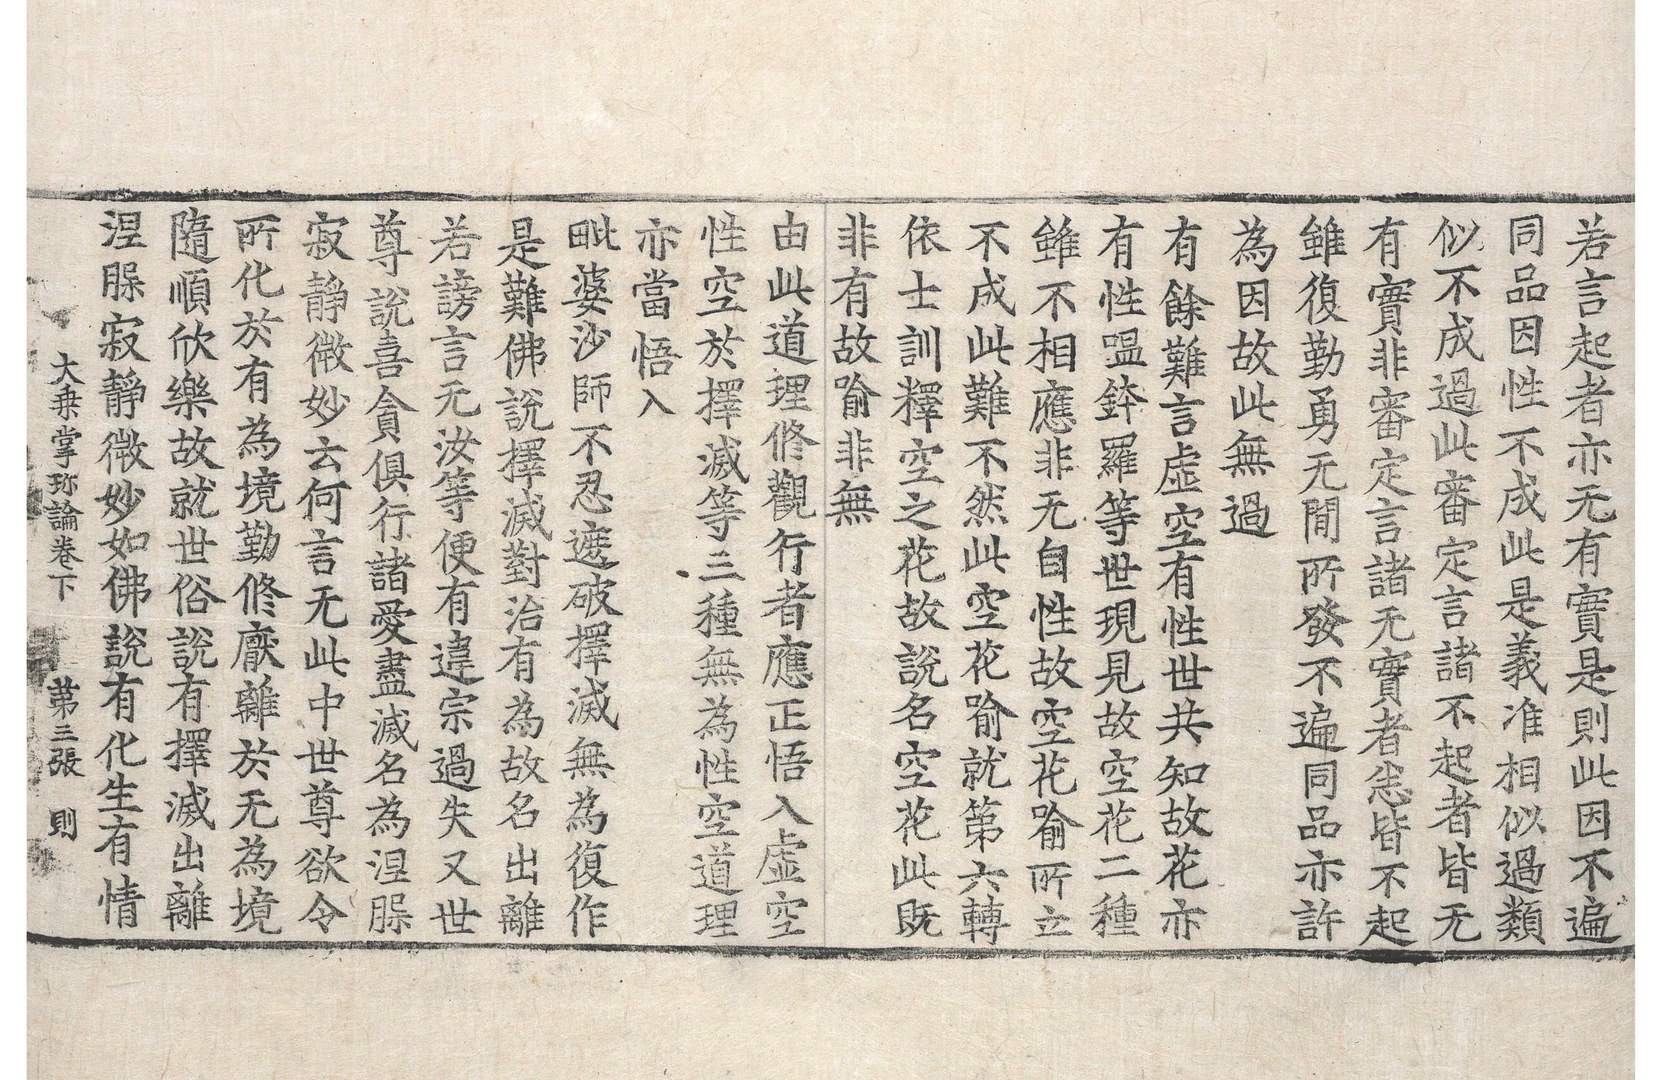 若言起者亦无有實是則此因不遍
同品因性不成此是義准相似過類
似不成過此審定言諸不起者皆无
有實非審定言諸无實者悉皆不起
雖復勤勇无閒所發不遍同品亦許
為因故此無過
有餘難言虛空有性世共知故花亦
有性嗢鉢羅等世現見故空花二種
雖不相應非无自性故空花喻所立
不成此難不然此空花喻就第六轉
依士訓釋空之花故說名空花此既
非有故喻非無
由此道理修觀行者應正悟入虛空
性空於擇滅等三種無為性空道理
亦當悟入
毗婆沙師不忍遮破擇滅無為復作
是難佛說擇滅對治有為故名出離
若謗言无汝等便有違宗過失又世
尊說喜貪俱行諸愛盡滅名為涅槃
寂靜微妙云何言无此中世尊欲令
所化於有為境勤修厭離於无為境
隨順欣樂故就世俗說有擇滅出離
涅槃寂靜微妙如佛說有化生有情
大乘掌珎論卷下　第三張　則